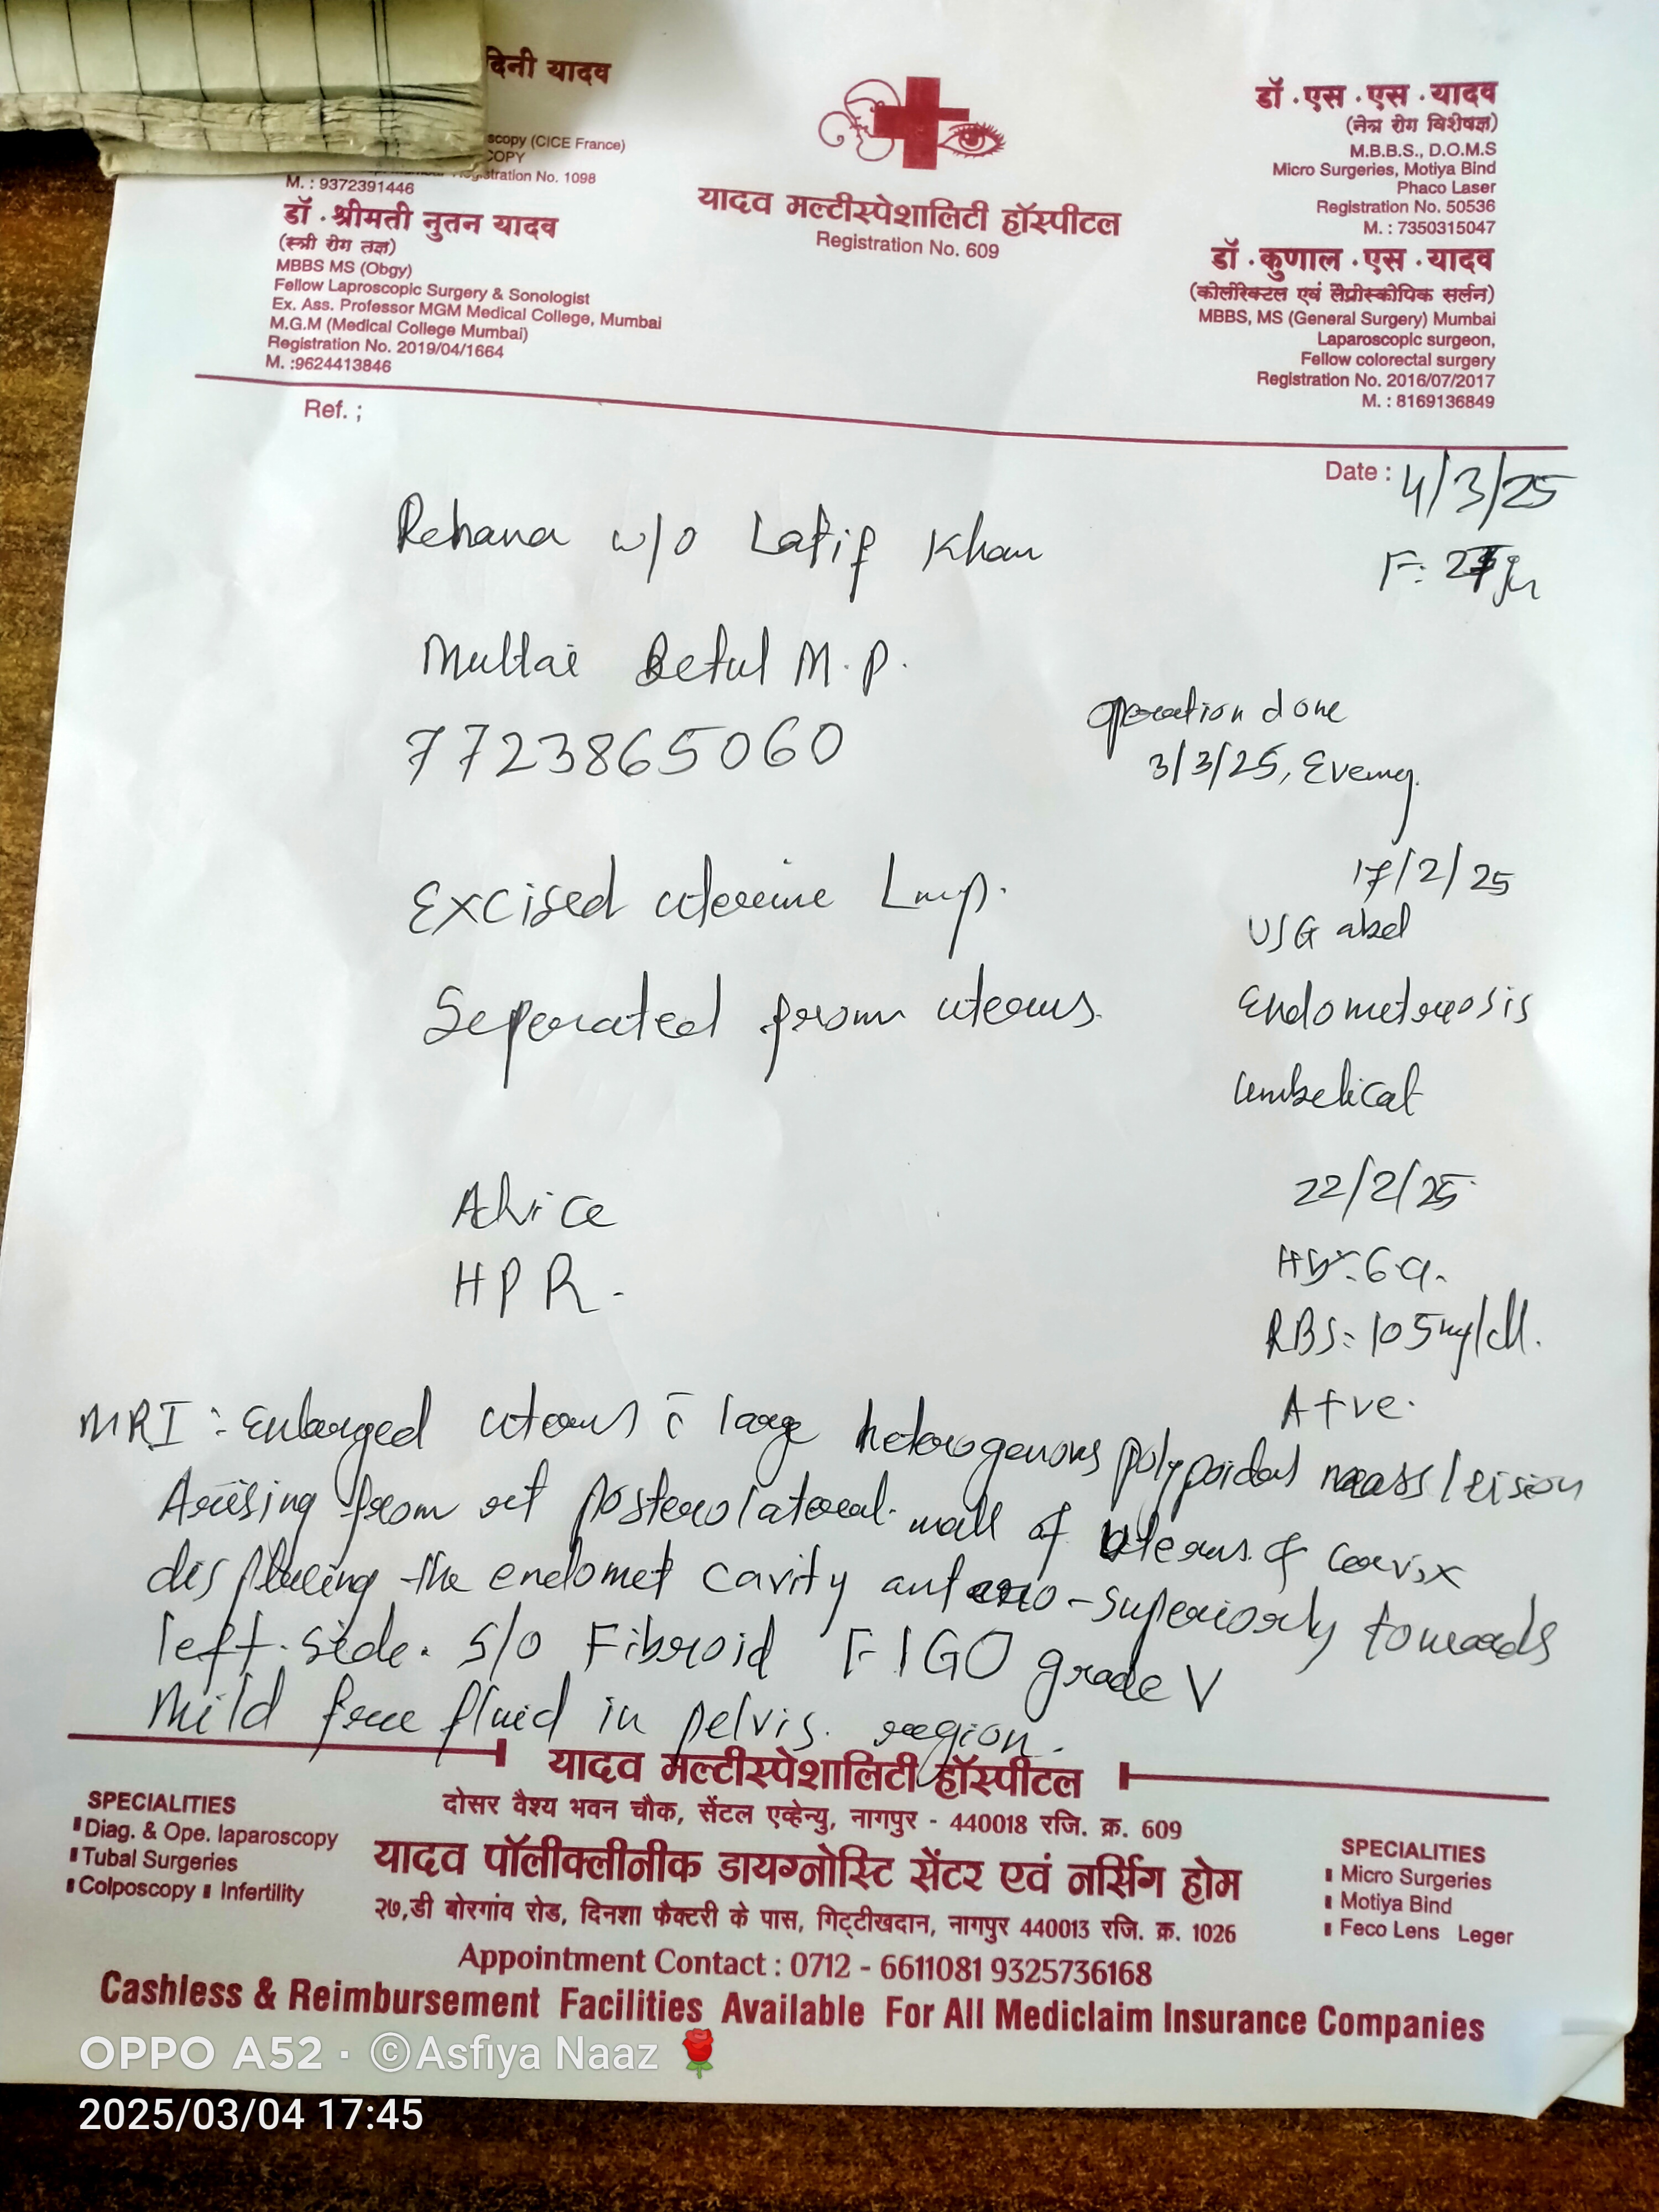 दिनी यादव
scopy (CICE France)
COPY
stration No. 1098
M. : 9372391446
डॉ . श्रीमती नुतन यादव
(स्त्री रोग तज्ञ)
MBBS MS (Obgy)
Fellow Laproscopic Surgery & Sonologist
Ex. Ass. Professor MGM Medical College, Mumbai
M.G.M (Medical College Mumbai)
Registration No. 2019/04/1664
M. :9624413846
यादव मल्टीस्पेशालिटी हॉस्पीटल
Registration No. 609
डॉ . एस . एस . यादव
(नेत्र रोग विशेषज्ञ)
M.B.B.S., D.O.M.S
Micro Surgeries, Motiya Bind
Phaco Laser
Registration No. 50536
M. : 7350315047
डॉ . कुणाल . एस . यादव
(कोलोरेक्टल एवं लैप्रोस्कोपिक सर्लन)
MBBS, MS (General Surgery) Mumbai
Laparoscopic surgeon,
Fellow colorectal surgery
Registration No. 2016/07/2017
M. : 8169136849
Ref. ;
Date : 4/3/25
Rehana w/o Latif Khan
F:
Multai Betul M.P.
7723865060
operation done
3/3/25, Evening
Excised uterine Lump.
Seperated from uterus.
17/2/25
USG abd
Endometreosis
umbelical
Advice
HPR.
22/2/25
RBS: 105mg/dl.
A+ve.
MRI : Enlarged uterus c̄ large heterogenous polypoidal mass/lision
Arising from rt posterolateral wall of uterus & cervix
displacing the endomet cavity antero-superiorly towards
left side. S/o Fibroid FIGO grade V
Mild free fluid in pelvis region.
यादव मल्टीस्पेशालिटी हॉस्पीटल
दोसर वैश्य भवन चौक, सेंटल एव्हेन्यु, नागपुर - 440018 रजि. क्र. 609
यादव पॉलीक्लीनीक डायग्नोस्टि सेंटर एवं नर्सिग होम
२७,डी बोरगांव रोड, दिनशा फैक्टरी के पास, गिट्टीखदान, नागपुर 440013 रजि. क्र. 1026
SPECIALITIES
Diag. & Ope. laparoscopy
Tubal Surgeries
Colposcopy Infertility
SPECIALITIES
Micro Surgeries
Motiya Bind
Feco Lens Leger
Appointment Contact : 0712 - 6611081 9325736168
Cashless & Reimbursement Facilities Available For All Mediclaim Insurance Companies
OPPO A52 · ©Asfiya Naaz 🌹
2025/03/04 17:45